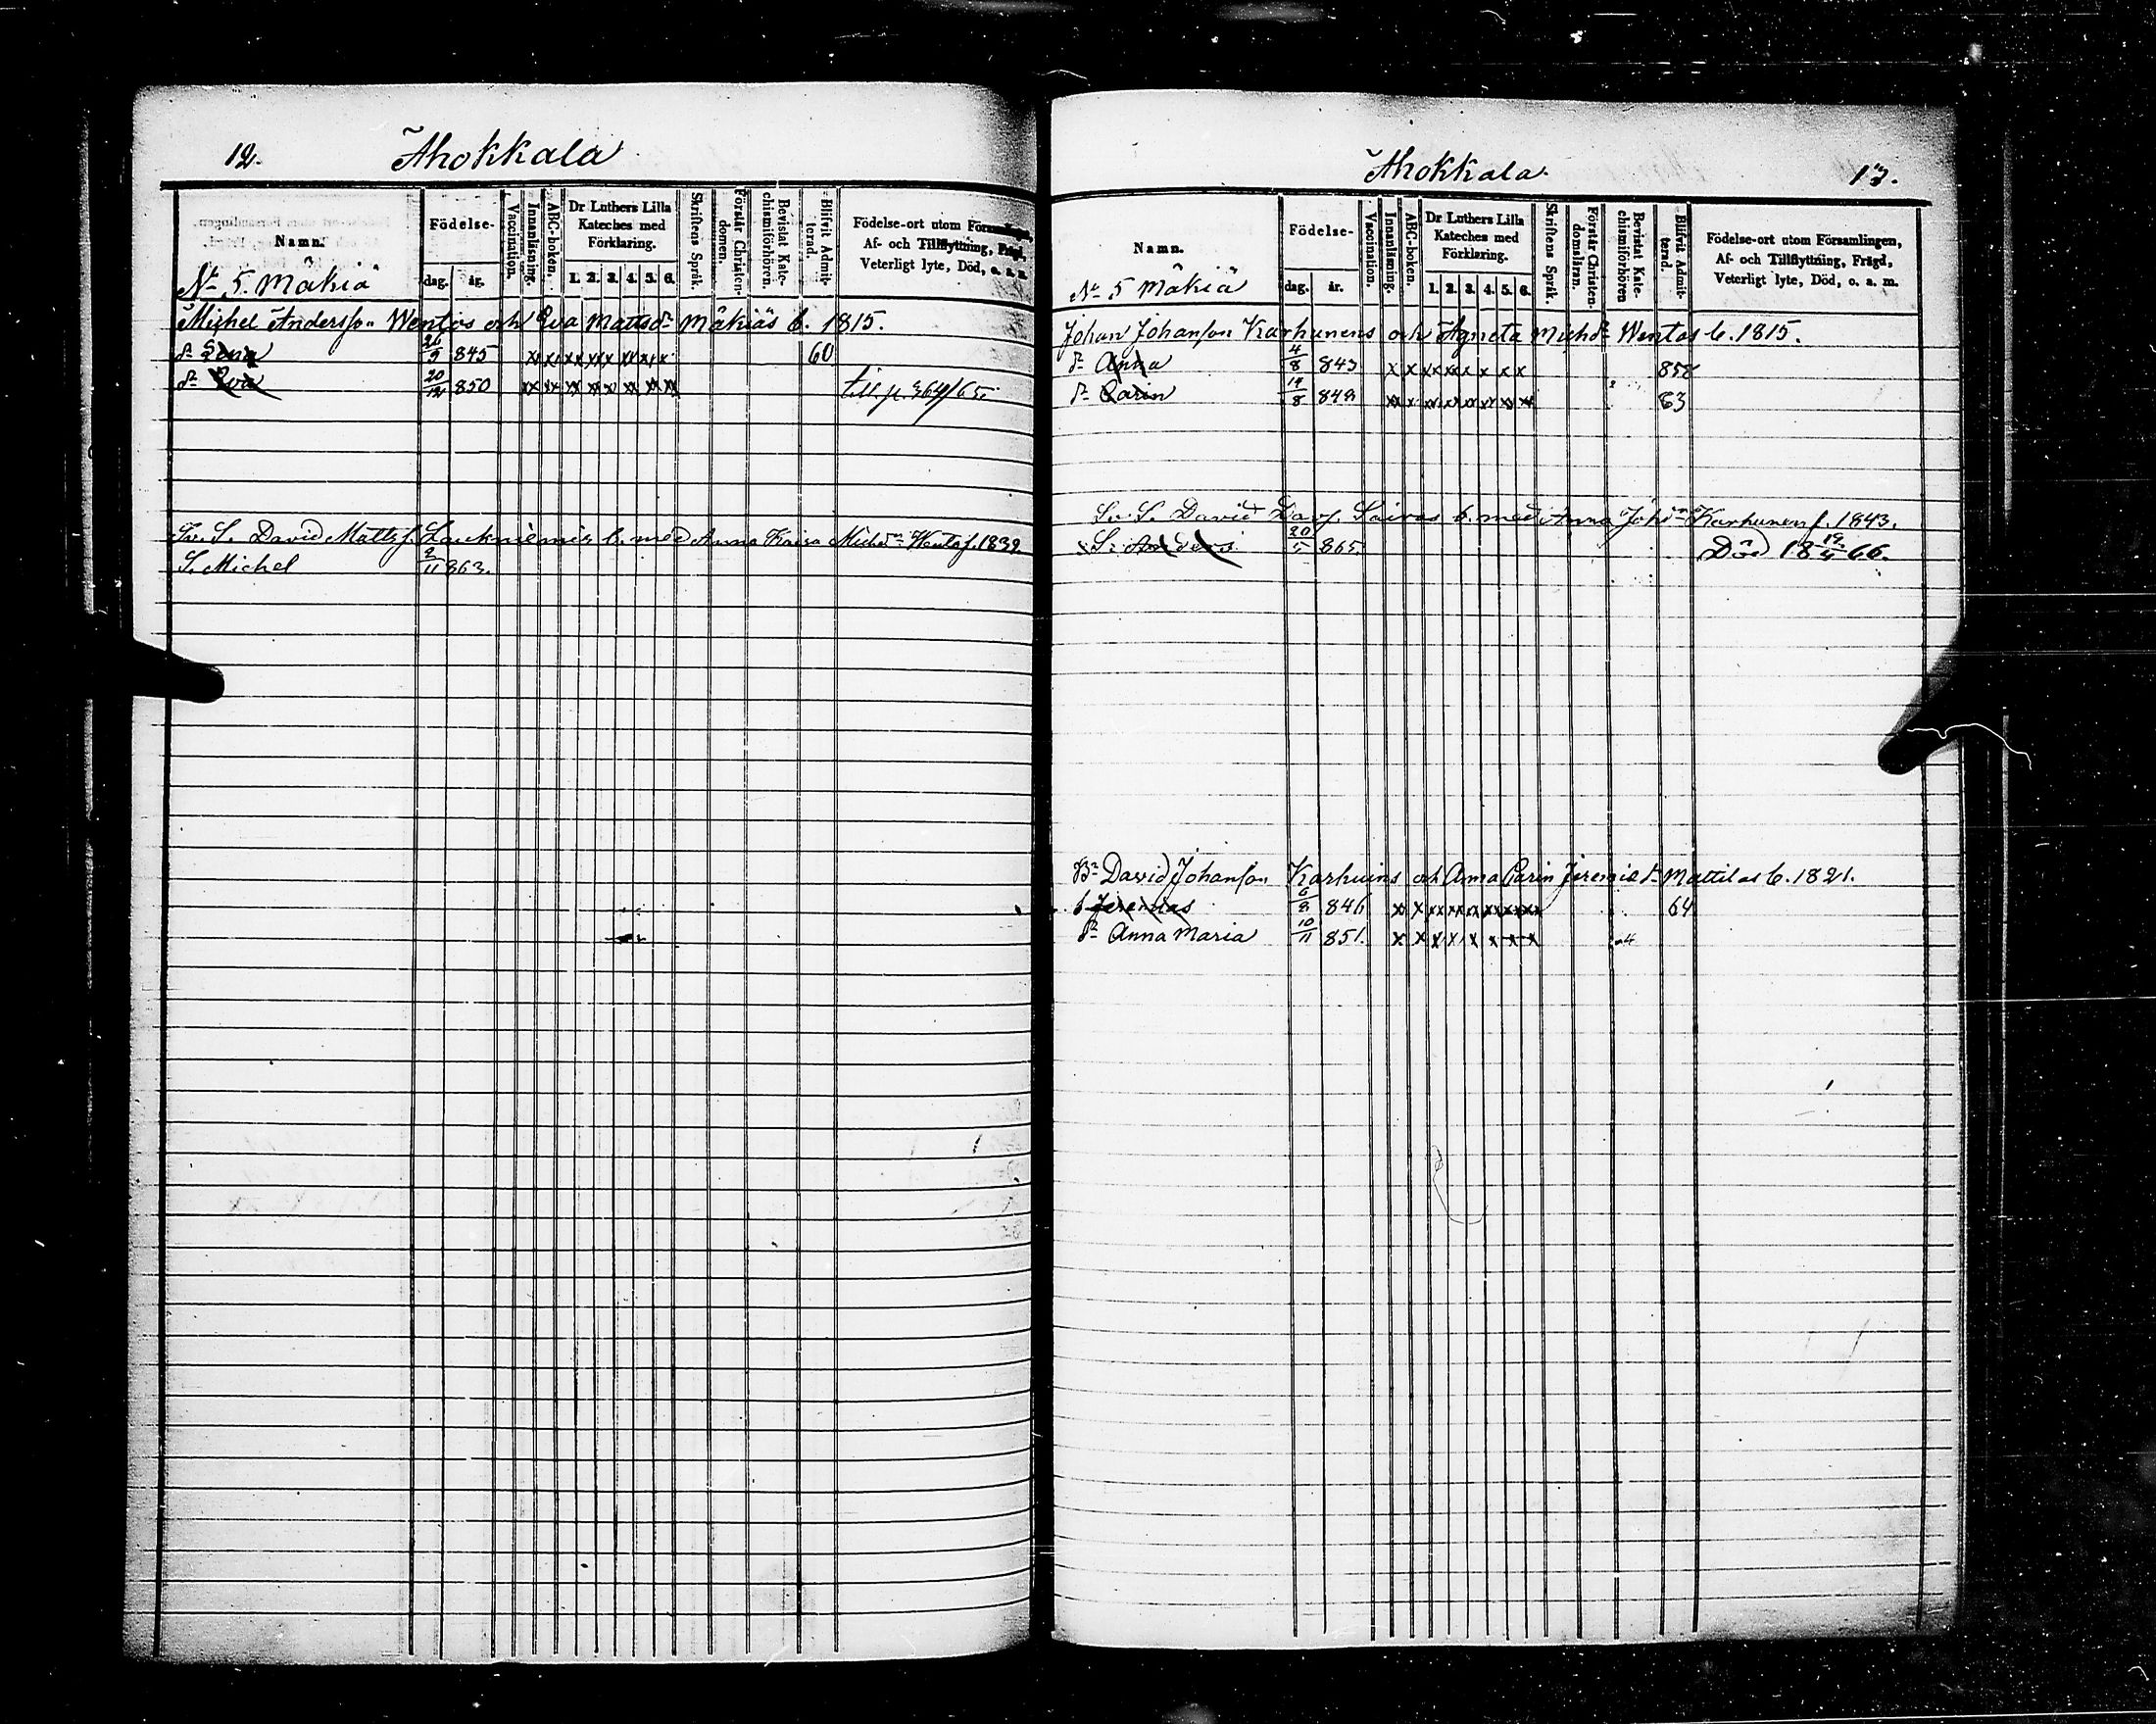 12. Ahokkala
Namn. Födelse- dag. år. Vaccination. Innanläsning. ABC-boken. Dr Luthers Lilla Kateches med Förklaring. 1. 2. 3. 4. 5. 6. Skriftens Språk. Förstår Christendomen. Bevistat Katechismiförhören. Blifvit Admitterad. Födelse-ort utom Församlingen, Af- och Tillflyttning, Frägd, Veterligt lyte, Död, o. a. m.
No 5. Mäkiä
Michel Andersson Wentos och Eva Mattsdr Mäkiäs b. 1815.
dr Lena 26/9 845 x xx xx xxx xx x x 60
dr Eva 20/12 850 xx xx xx xx x xx xx xx till. p. 364/65.
Sv. S. David Mattsf. Laukniemis b. med Anna Kaisa Michdr Wentos f. 1839
S. Michel 2/11 863.
Ahokkala. 13.
Namn. Födelse- dag. år. Vaccination. Innanläsning. ABC-boken. Dr Luthers Lilla Kateches med Förklaring. 1. 2. 3. 4. 5. 6. Skriftens Språk. Förstår Christendomsläran. Bevistat Katechismiförhören Blifvit Admitterad. Födelse-ort utom Församlingen, Af- och Tillflyttning, Frägd, Veterligt lyte, Död, o. a. m.
No 5 Mäkiä
Johan Johanson Karhunens och Agneta Michdr Wentas b. 1815.
dr Anna 4/8 843 x x xx xx x x x x 858
dr Carin 14/8 848 xx x xx xx xx xx xx 63
Sv. S. David Dav.f. Soivas b. med Anna Johdr Karhunen f. 1843.
S. Anders 20/5 865. Död 18 19/4 66.
Br David Johanson Karhuins och Anna Carin Jeremiedr Mattilas b. 1821.
s Jeremias 6/8 846 xx x xx xx xx xx xx xx 64
dr Anna Maria 10/11 851. x x x x x x x x 4